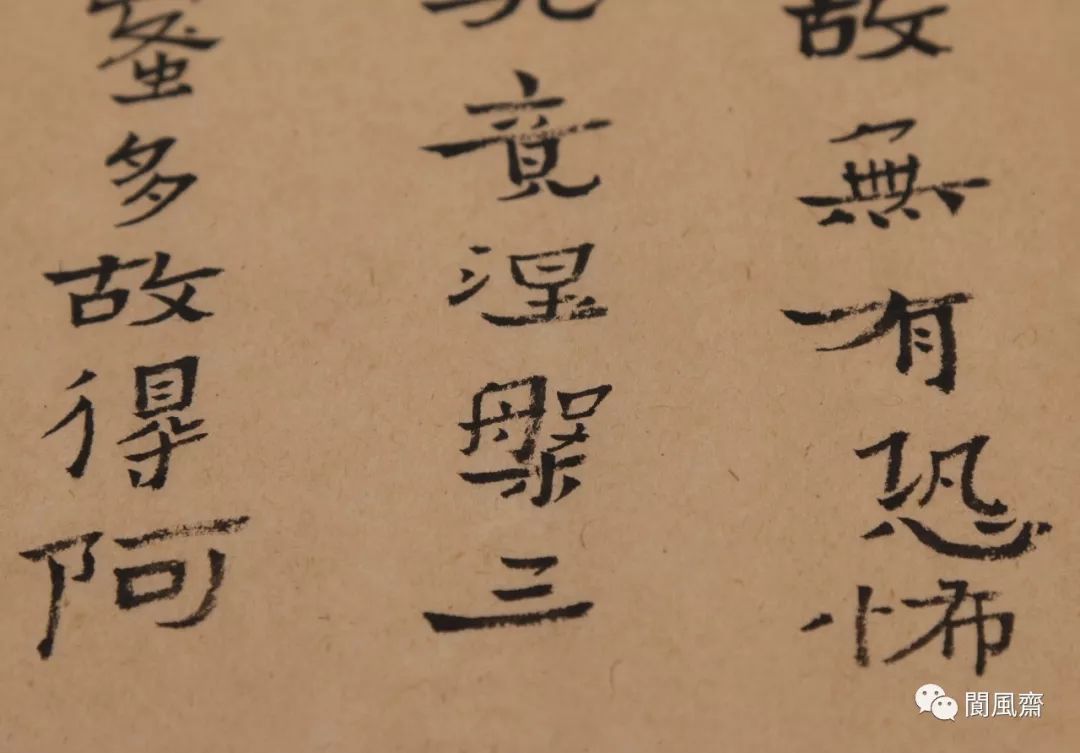 故無有恐怖
竟涅槃三
蜜多故得阿
閬風齋